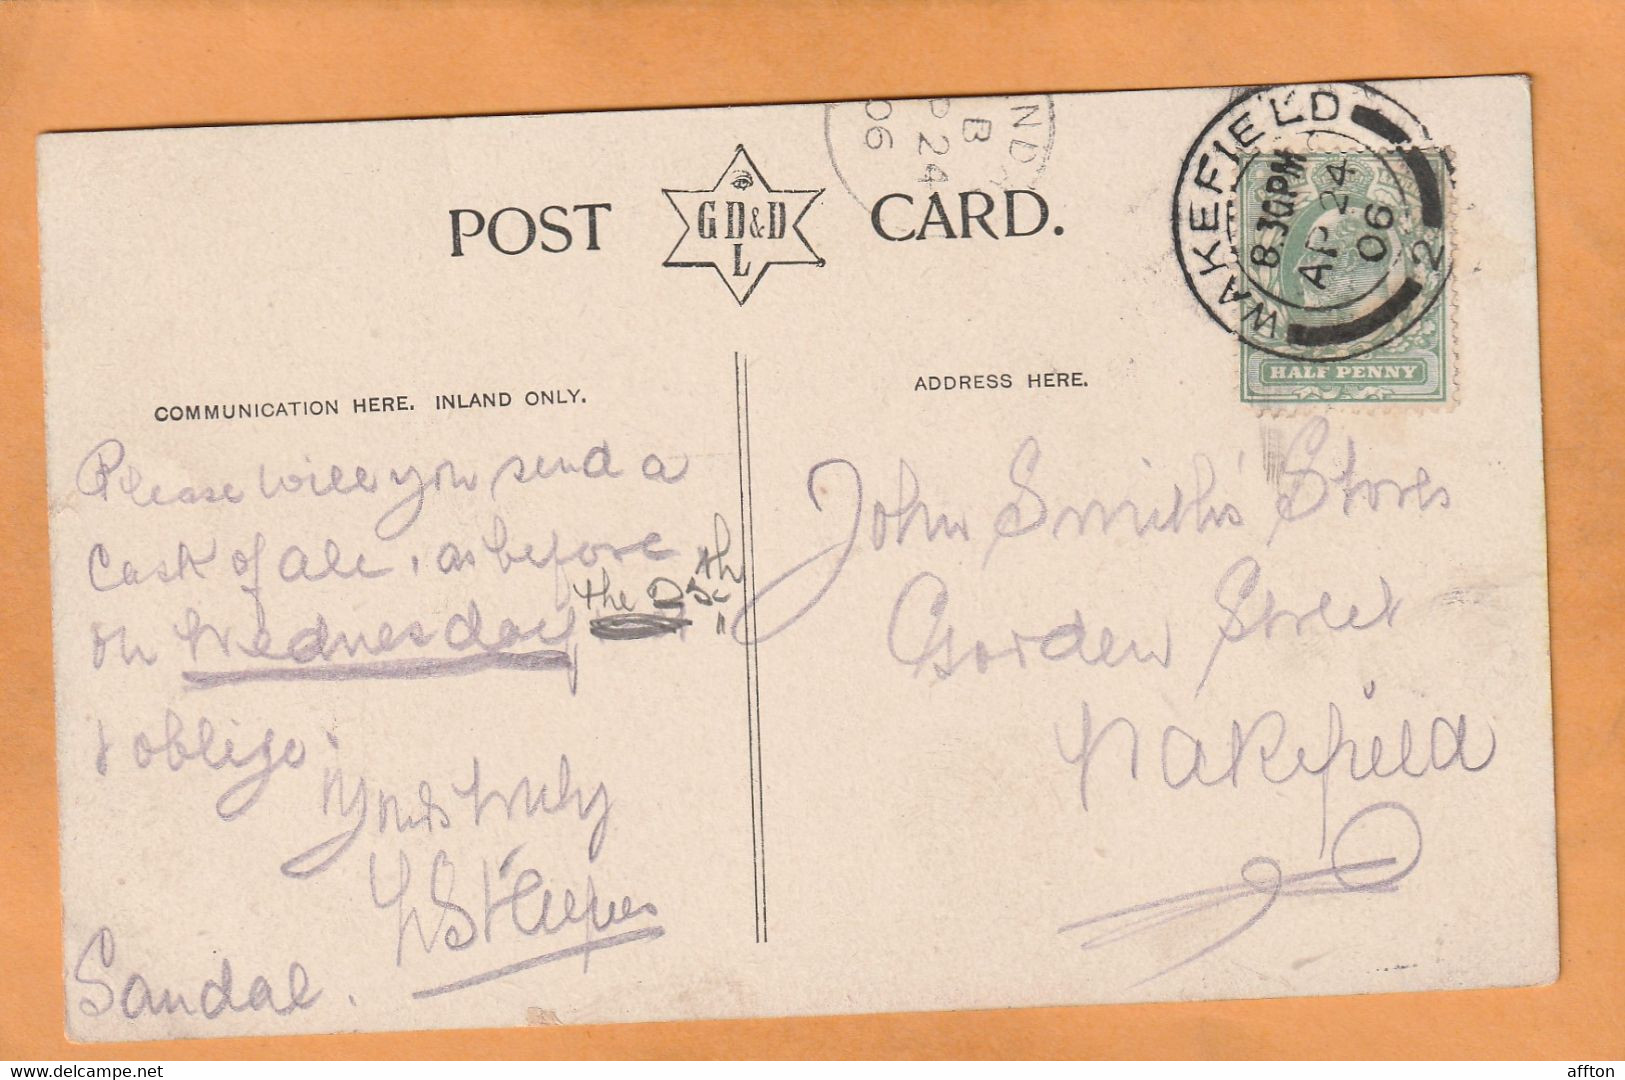 POST CARD.
G D & D
L
WAKEFIELD
8.30PM
AP 24
06
2
ND
B
P 24
06
HALF PENNY
COMMUNICATION HERE. INLAND ONLY.
ADDRESS HERE.
Please will you send a
Cask of ale, as before
on Wednesday the 25th
& oblige
Yours truly
Sandal.
John Smith's Stores
Gorden Street
Wakefield
affton
www.delcampe.net